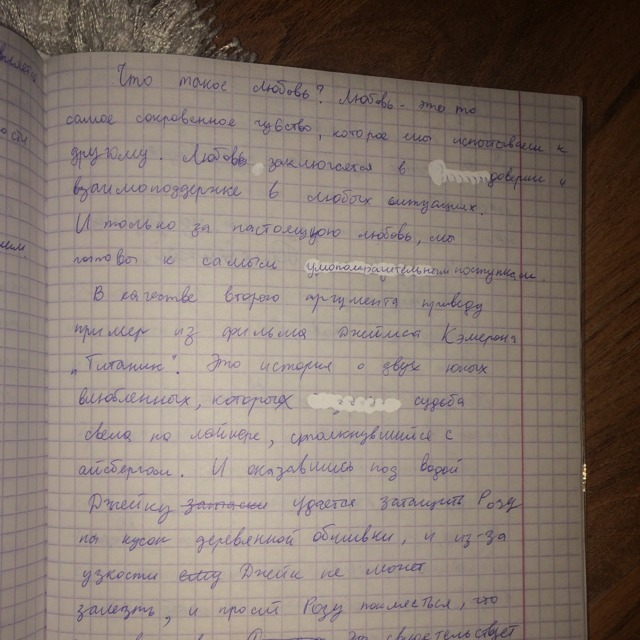 Что такое любовь? Любовь - это то
самое сокровенное чувство, которое мы испытываем к
другому. Любовь заключается в доверии и
взаимоподдержке в любых ситуациях.
И только за настоящую любовь, мы
готовы к самым умопомрачительным поступкам.
В качестве второго аргумента приведу
пример из фильма Джеймса Кэмерона
„Титаник". Это история о двух юных
влюбленных, которых судьба
свела на лайнере, столкнувшийся с
айсбергом. И оказавшись под водой
Джейку удается затащить Розу
на кусок деревянной обшивки, и из-за
узкости ему Джейк не может
залезть, и просит Розу поклясться, что
Это свидетельствует